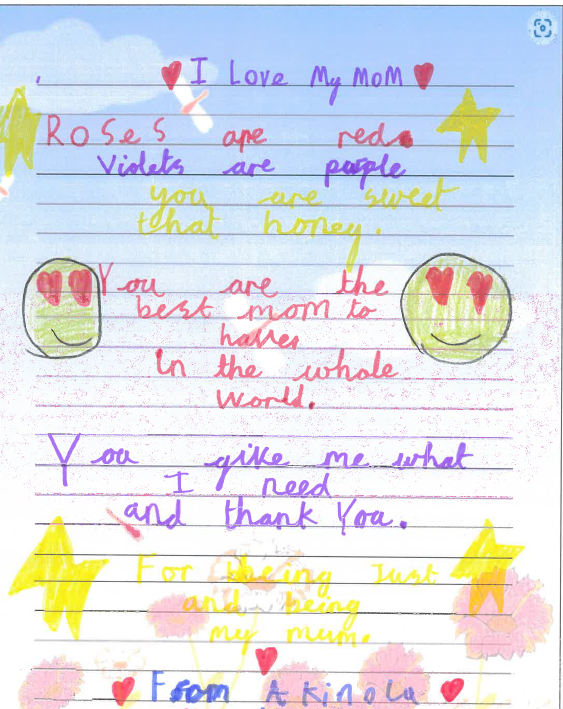 I Love My Mom
Roses are red.
Violets are purple
you are sweet
that honey.
You are the
best mom to
haves
in the whole
World.
You give me what
I need
and thank You.
For bheing Just
and being
my mum.
From Akinola